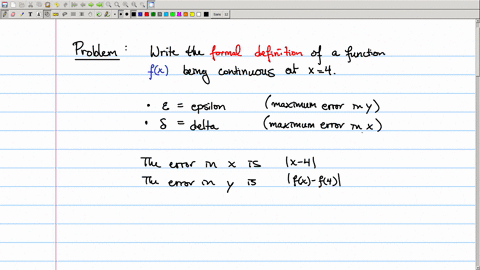 Problem: Write the formal definition of a function
f(x) being continuous at x=4.
• ε = epsilon (maximum error in y)
• δ = delta (maximum error in x)
The error in x is |x-4|
The error in y is |f(x)-f(4)|